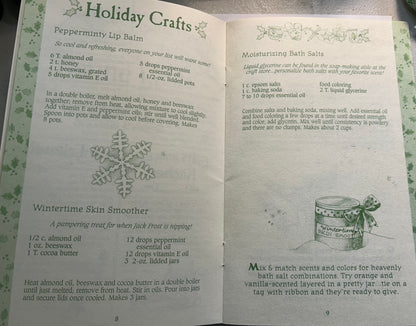 Holiday Crafts
Pepperminty Lip Balm
So cool and refreshing, everyone on your list will want some!
6 T. almond oil
2 t. honey
4 t. beeswax, grated
5 drops vitamin E oil
5 drops peppermint
essential oil
8 1/2-oz. lidded pots
In a double boiler, melt almond oil, honey and beeswax
together; remove from heat, allowing mixture to cool slightly.
Add vitamin E and peppermint oils; stir until well blended.
Spoon into pots and allow to cool before covering. Makes
8 pots.
Wintertime Skin Smoother
A pampering treat for when Jack Frost is nipping!
1/2 c. almond oil
1 oz. beeswax
1 T. cocoa butter
12 drops peppermint
essential oil
12 drops vitamin E oil
3 2-oz. lidded jars
Heat almond oil, beeswax and cocoa butter in a double boiler
until just melted; remove from heat. Stir in oils. Pour into jars
and secure lids once cooled. Makes 3 jars.
8
Moisturizing Bath Salts
Liquid glycerine can be found in the soap-making aisle at the
craft store...personalize bath salts with your favorite scent!
1 c. epsom salts
1 c. baking soda
7 to 10 drops essential oil
food coloring
2 T. liquid glycerine
Combine salts and baking soda, mixing well. Add essential oil
and food coloring a few drops at a time until desired strength
and color; add glycerin. Mix well until consistency is powdery
and there are no clumps. Makes about 2 cups.
Wintertime
Skin Smoother
Mix & match scents and colors for heavenly
bath salt combinations. Try orange and
vanilla-scented layered in a pretty jar...tie on a
tag with ribbon and they're ready to give.
9